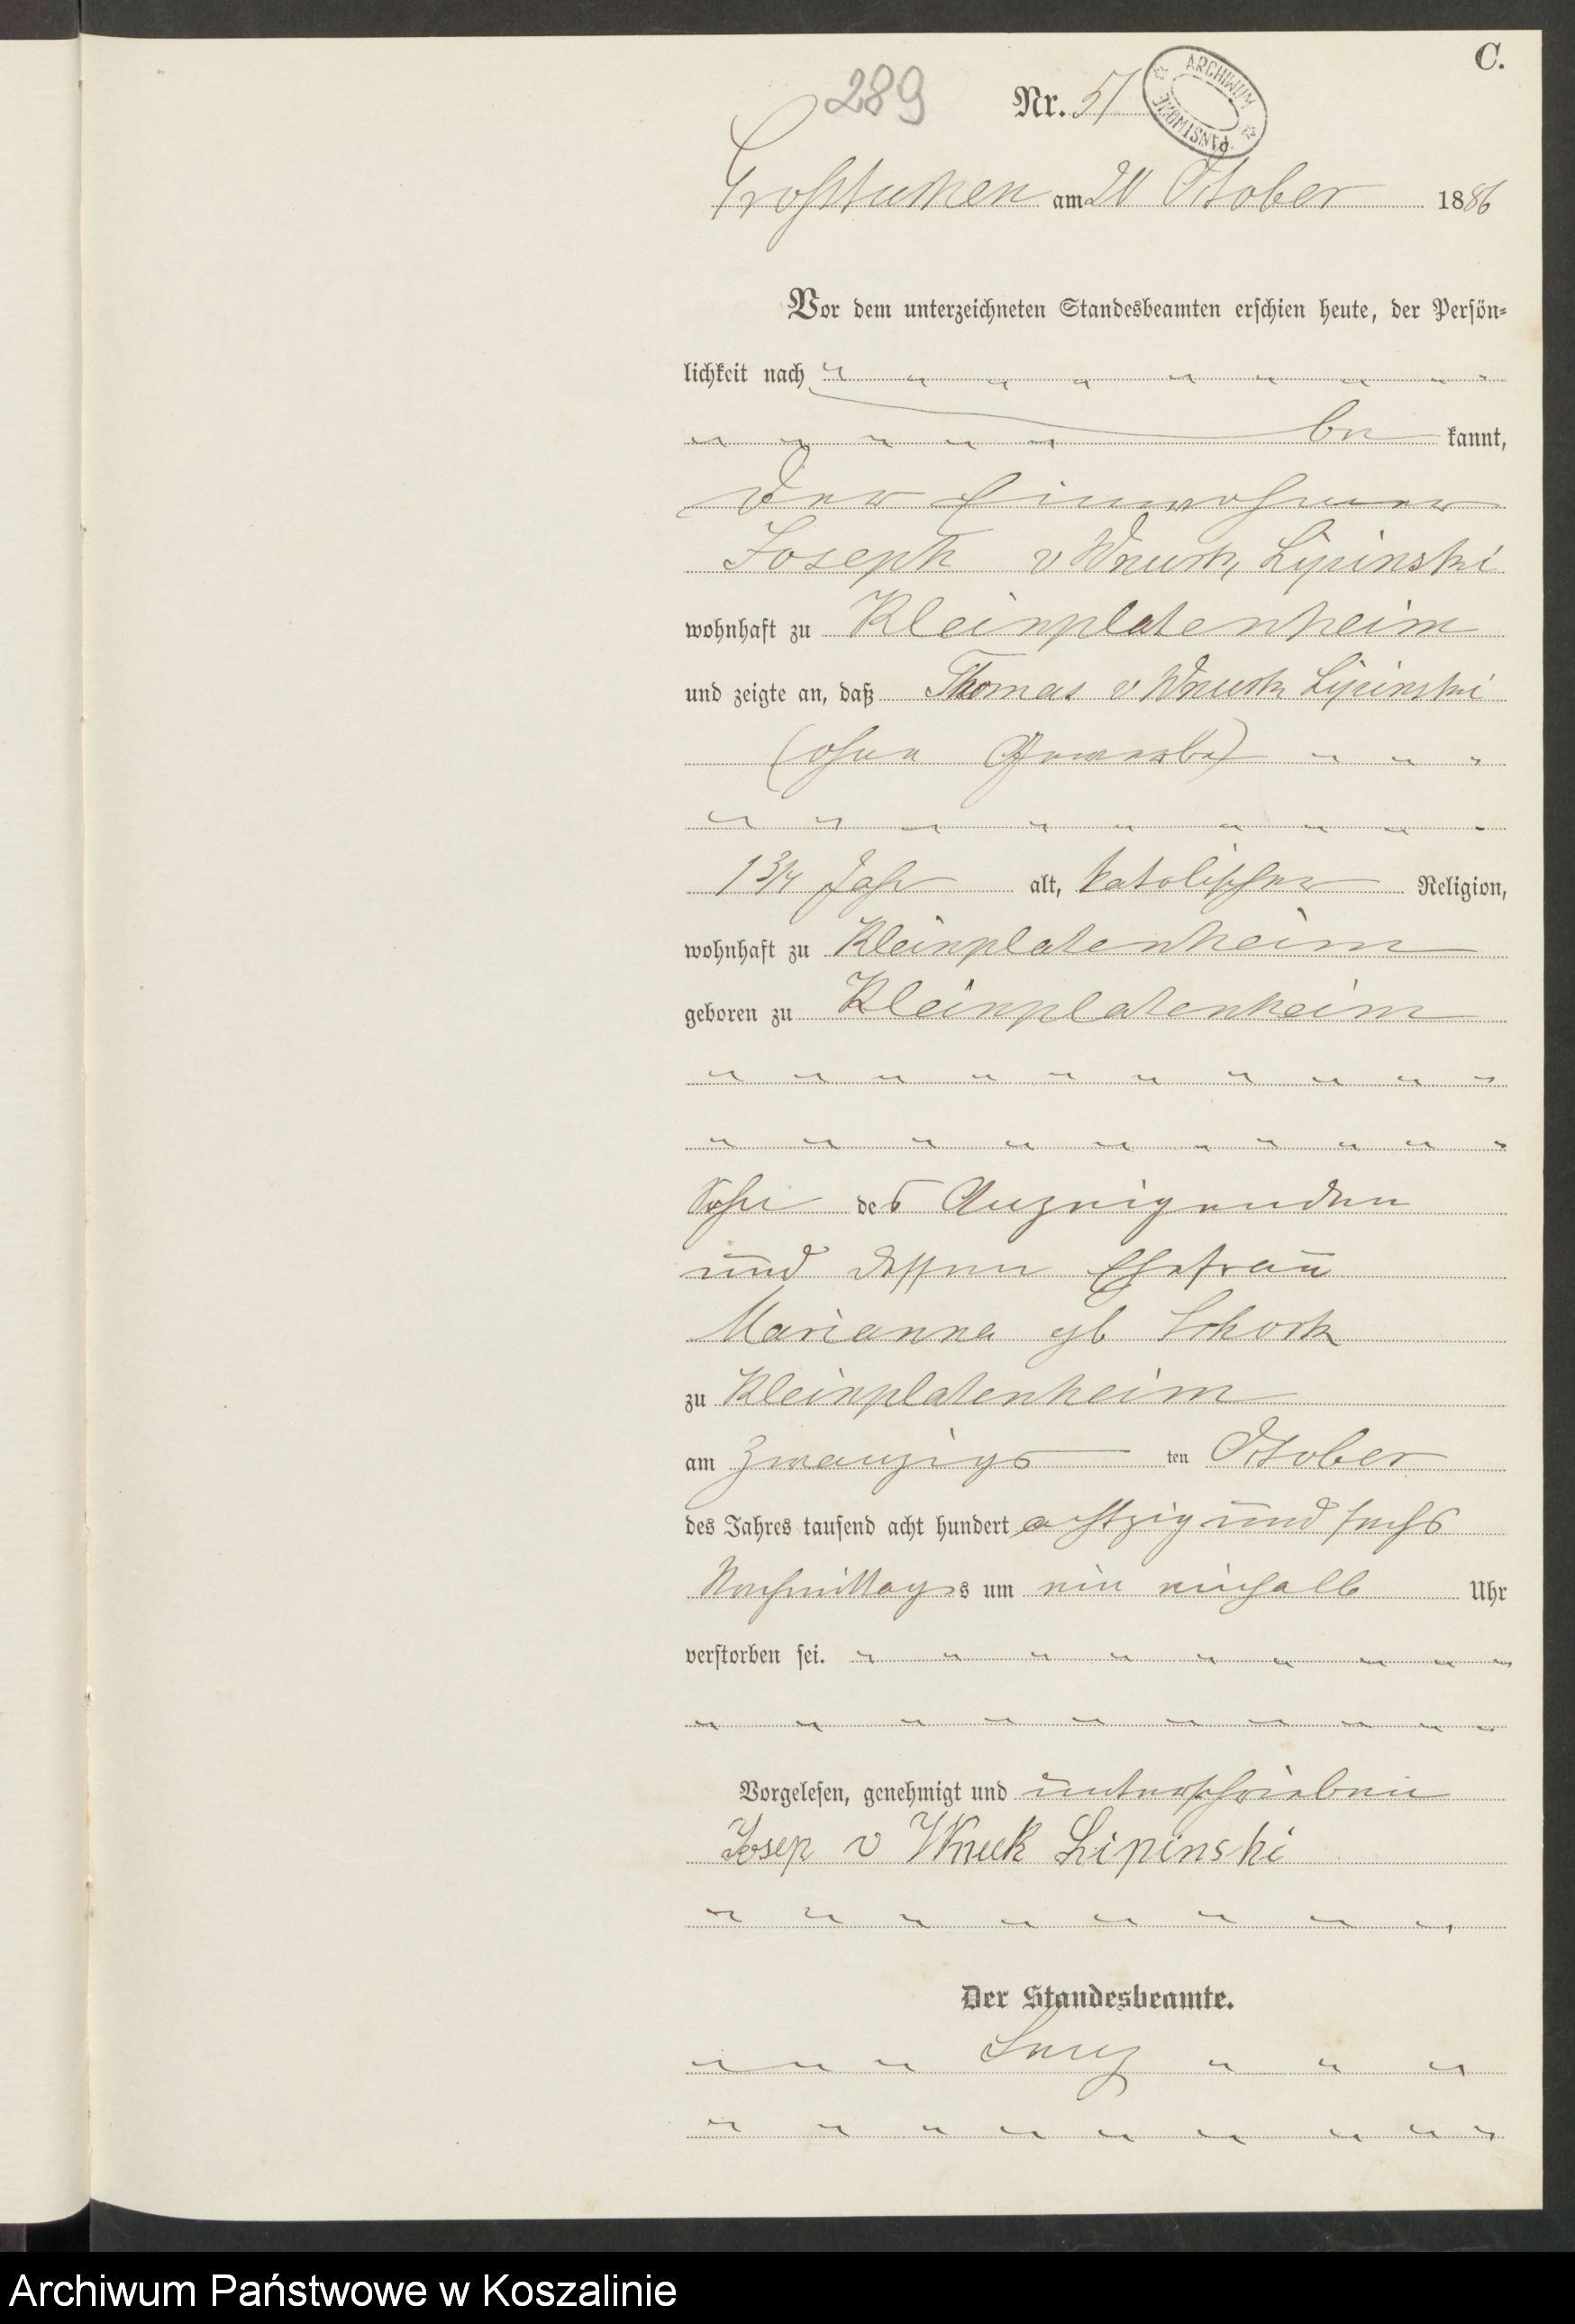 C.
289 Nr. 51
ARCHIWUM PAŃSTWOWE
Großtuchen am 20 October 1886
Vor dem unterzeichneten Standesbeamten erschien heute, der Persön-
lichkeit nach
be kannt,
der Einwohner
Joseph v Wnuck Lipinski
wohnhaft zu Kleinplatenheim
und zeigte an, daß Thomas v Wnuck Lipinski
(ohne Gewerbe)
1 3/4 Jahr alt, katolischer Religion,
wohnhaft zu Kleinplatenheim
geboren zu Kleinplatenheim
Sohn des Anzeigenden
und dessen Ehefrau
Marianna gb
zu Kleinplatenheim
am Zwanzigs ten October
des Jahres tausend acht hundert achtzig und sechs
Nachmittags um ein einhalb Uhr
verstorben sei.
Vorgelesen, genehmigt und unterschrieben
Josep v Wnuck Lipinski
Der Standesbeamte.
Archiwum Państwowe w Koszalinie